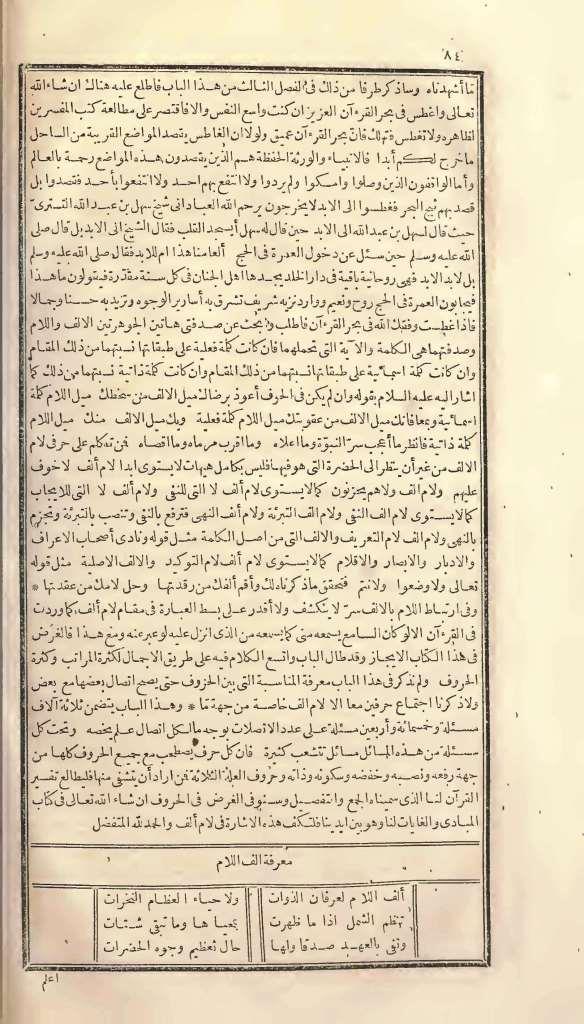 ٨٤
ما أشهدناه وسأذكر طرفا من ذلك فى الفصل الثالث من هذا الباب فاطلع عليه هنالك ان شاء الله
تعالى واغطس فى بحر القرءآن العزيز ان كنت واسع النفس والا فاقتصر على مطالعة كتب المفسرين
لظاهره ولا تغطس فتهلك فان بحر القرءآن عميق ولولا ان الغاطس يقصد المواضع القريبة من الساحل
ما خرج لكم أبدا فالانبياء والورثة الحفظة هم الذين يقصدون هذه المواضع رحمة بالعالم
وأما الواقفون الذين وصلوا وامسكوا ولم يردوا ولا انتفع بهم احد ولا انتفعوا بأحد فقصدوا بل
قصد بهم ثبج البحر فغطسوا الى الابد لا يخرجون يرحم الله العبادانى شيخ سهل بن عبد الله التسترى
حيث قال لسهل بن عبد الله الى الابد حين قال له سهل أيسجد القلب فقال الشيخ الى الابد بل قال صلى
الله عليه وسلم حين سئل عن دخول العمرة فى الحج ألعامنا هذا ام للابد فقال صلى الله عليه وسلم
بل لابد الابد فهى روحانية باقية فى دار الخلد يجدها اهل الجنان فى كل سنة مقدرة فيقولون ما هذا
فيجابون العمرة فى الحج روح ونعيم ووارد نزيه شريف تشرق به أسارير الوجوه وتزيد به حسنا وجمالا
فاذا غطست وفقك الله فى بحر القرءآن فاطلب وابحث عن صدفتى هاتين الجوهرتين الالف واللام
وصدفتهما هى الكلمة والآية التى تحملهما فان كانت كلمة فعلية على طبقاتها نسبتهما من ذلك المقام
وان كانت كلمة اسمائية على طبقاتها نسبتهما من ذلك المقام وان كانت كلمة ذاتية نسبتهما من ذلك كما
اشار اليه عليه السلام بقوله وان لم يكن فى الحرف أعوذ برضاك ميل الالف من سخطك ميل اللام كلمة
اسمائية وبمعافاتك ميل الالف من عقوبتك ميل اللام كلمة فعلية وبك ميل الالف منك ميل اللام
كلمة ذاتية فانظر ما أعجب سر النبوة وما اعلاه وما اقرب مرماه وما اقصاه فمن تكلم على حرفى لام
الالف من غير أن ينظر الى الحضرة التى هو فيها فليس بكامل هيهات لا يستوى ابدا لام ألف لا خوف
عليهم ولام الف ولا هم يحزنون كما لا يستوى لام ألف لا التى للنفى ولام ألف لا التى للايجاب
كما لا يستوى لام الف النفى ولام الف التبرئة ولام ألف النهى فترفع بالنفى وتنصب بالتبرئة وتجزم
بالنهى ولام الف لام التعريف والالف التى من اصل الكلمة مثل قوله ونادى أصحاب الاعراف
والادبار والابصار والاقلام كما لا يستوى لام ألف لام التوكيد والالف الاصلية مثل قوله
تعالى ولأوضعوا ولأنتم فتحقق ما ذكرناه لك وأقم ألفك من رقدتها وحل لامك من عقدتها *
وفى ارتباط اللام بالالف سر لا ينكشف ولا أقدر على بسط العبارة فى مقام لام ألف كما وردت
فى القرءآن الا لو كان السامع يسمعه منى كما يسمعه من الذى انزل عليه لو عبر عنه ومع هذا فالغرض
فى هذا الكتاب الايجاز وقد طال الباب واتسع الكلام فيه على طريق الاجمال لكثرة المراتب وكثرة
الحروف ولم نذكر فى هذا الباب معرفة المناسبة التى بين الحروف حتى يصح اتصال بعضها مع بعض
ولا ذكرنا اجتماع حرفين معا الا لام الف خاصة من جهة ما * وهذا الباب يتضمن ثلاثة آلاف
مسئلة وخمسمائة وأربعين مسئلة على عدد الاتصلات بوجه ما لكل اتصال علم يخصه وتحت كل
مسئلة من هذه المسائل مسائل تتشعب كثيرة فان كل حرف يصطحب مع جميع الحروف كلها من
جهة رفعه ونصبه وخفضه وسكونه وذاته وحروف العلة الثلاثة فمن اراد أن يتشفى منها فليطالع تفسير
القرآن لنا الذى سميناه الجمع والتفصيل وسنوفى الغرض فى الحروف ان شاء الله تعالى فى كتاب
المبادى والغايات لنا وهو بين ايدينا فلتكف هذه الاشارة فى لام ألف والحمد لله المتفضل
معرفة الف اللام
ألف اللام لعرفان الذوات ولاحياء العظام النخرات
تنظم الشمل اذا ما ظهرت بمحياها وما تبقى شتات
وتفى بالعهد صدقا ولها حال تعظيم وجوه الحضرات
اعلم